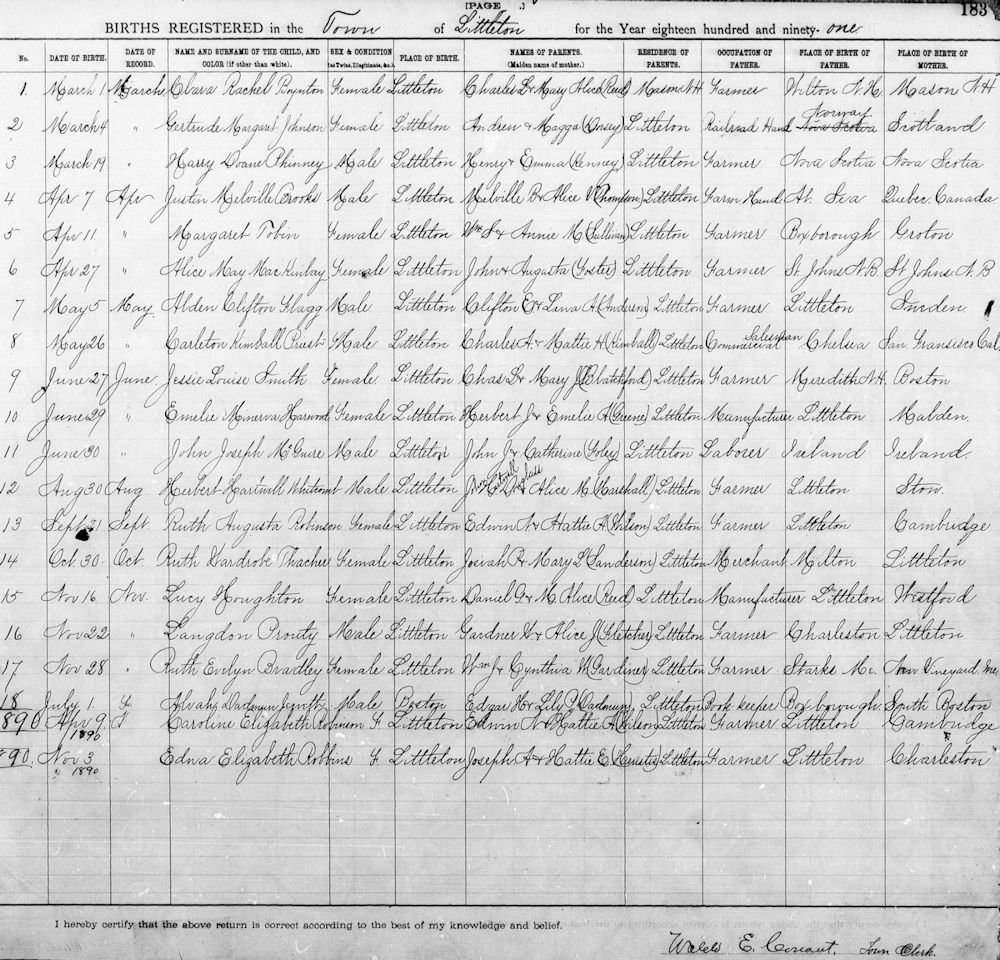 [PAGE ] 183
BIRTHS REGISTERED in the Town of Littleton for the Year eighteen hundred and ninety- one
No. DATE OF BIRTH. DATE OF RECORD. NAME AND SURNAME OF THE CHILD, AND COLOR (if other than white). SEX & CONDITION (as Twins, Illegitimate, &c.) PLACE OF BIRTH. NAMES OF PARENTS. (Maiden name of mother.) RESIDENCE OF PARENTS. OCCUPATION OF FATHER. PLACE OF BIRTH OF FATHER. PLACE OF BIRTH OF MOTHER.
1 March 1 March Clara Rachel Boynton Female Littleton Charles L & Mary Alice (Reed) Mason N H Farmer Wilton N. H. Mason N H
2 March 4 " Gertrude Margart Johnson Female Littleton Andrew & Magga Littleton Railroad Hand Nova Scotia Norway Scotland
3 March 19 " Harry Doane Phinney Male Littleton Henry & Emma (Kenney) Littleton Farmer Nova Scotia Nova Scotia
4 Apr 7 Apr Justin Melville Brooks Male Littleton Melville B & Alice V (Thompson) Littleton Farm Hand At Sea Quebec. Canada
5 Apr 11. " Margaret Tobin Female Littleton Wm & Annie M. (Sullivan) Littleton Farmer Boxborough Groton
6 Apr 27 " Alice May MacKinlay Female Littleton John & Augusta (Foster) Littleton Farmer St Johns N.B St Johns N. B
7 May 5 May Alden Clifton Flagg Male Littleton Clifton E & Lena A (Anderson) Littleton Farmer Littleton Sweden
8 May 26 " Carleton Kimball Priest Male Littleton Charles A. & Mattie H (Kimball) Littleton Commercial Salesman Chelsea San Fransisco Cal.
9 June 27 June Jessie Louise Smith Female Littleton Chas L & Mary J (Blatchford) Littleton Farmer Meredith N.H. Boston
10 June 29 " Emelie Minerva Harwood Female Littleton Herbert J & Emelie A (Greene) Littleton Manufacturer Littleton Malden.
11 June 30 " John Joseph McGuire Male Littleton John J & Catherine (Foley) Littleton Laborer Ireland Ireland.
12 Aug 30 Aug Herbert Hartwell Whitcomb Male Littleton & Alice M (Marshall) Littleton Farmer Littleton Stow.
13 Sept 21 Sept. Ruth Augusta Robinson Female Littleton Edwin N & Hattie A (Wilson) Littleton Farmer Littleton Cambridge
14 Oct. 30. Oct. Ruth Wardrobe Thacher Female Littleton Josiah P & Mary S (Sanderson) Littleton Merchant Milton Littleton
15 Nov 16 Nov. Lucy Houghton Female Littleton Daniel G & M. Alice (Reed) Littleton Manufacturer Littleton Westford
16 Nov 22 " Langdon Prouty Male Littleton Gardner W & Alice J (Fletcher) Littleton Farmer Charleston Littleton
17 Nov 28 " Ruth Evelyn Bradley Female Littleton Wm J & Cynthia W (Gardiner) Littleton Farmer Starks Me. New Vineyard Me.
18 July 1. Alvah Dadmun Jewett Male Boston Edgar H & Lily P (Dadmun) Littleton Book keeper Boxborough South Boston
1890 Apr 9 1890 Caroline Elizabeth Robinson F. Littleton Edwin N & Hattie A (Wilson) Littleton Farmer Littleton Cambridge
1890. Nov 3 " 1890 Edna Elizabeth Robbins F Littleton Joseph A & Hattie E (Hewstis) Littleton Farmer Littleton Charleston
I hereby certify that the above return is correct according to the best of my knowledge and belief.
E. Conant, Town Clerk.